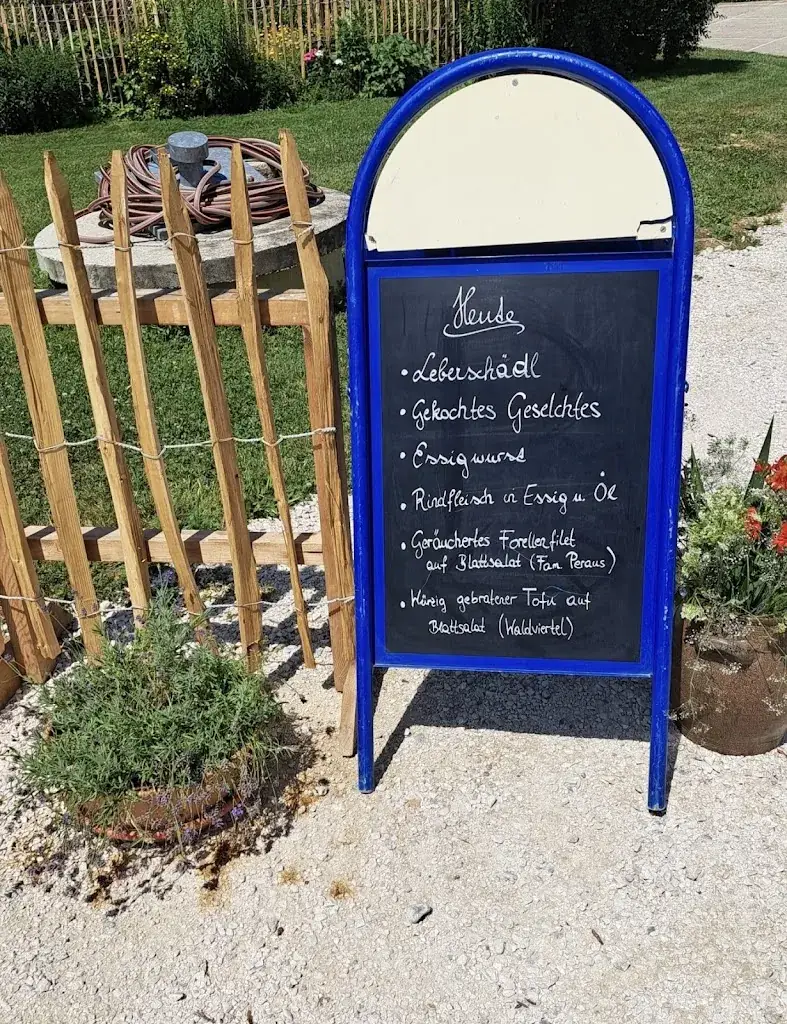 Heute
• Leberschädl
• Gekochtes Geselchtes
• Essigwurst
• Rindfleisch in Essig u. Öl
• Geräuchertes Forellenfilet
auf Blattsalat (Fam Peraus)
• Würzig gebratener Tofu auf
Blattsalat (Waldviertel)